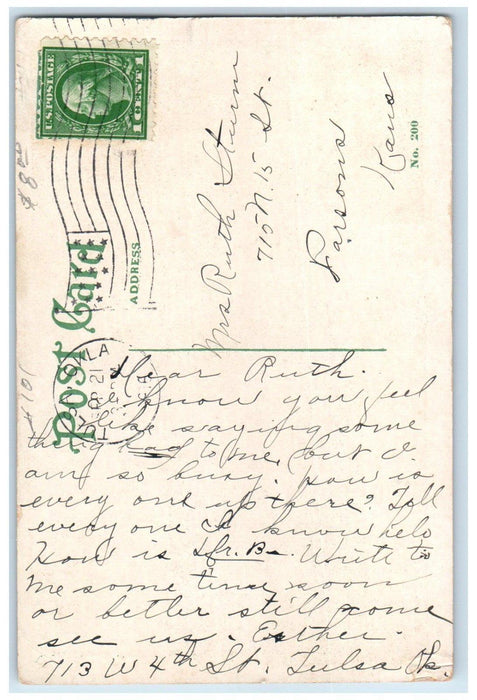 U.S. POSTAGE
1 CENT 1
$8.00
Post Card
ADDRESS
No. 200
Mrs Ruth Sturm
710 N. 15 St.
Parsons
Kans
OKLA
SEP 21
Dear Ruth.
I know you feel
like saying some
thing bad to me, but I
am so busy. How is
every one up there? Tell
every one I know helo
How is Mr. B-. Write to
me some time soon
or better still come
see us. Esther.
713 W 4th St. Tulsa Ok.